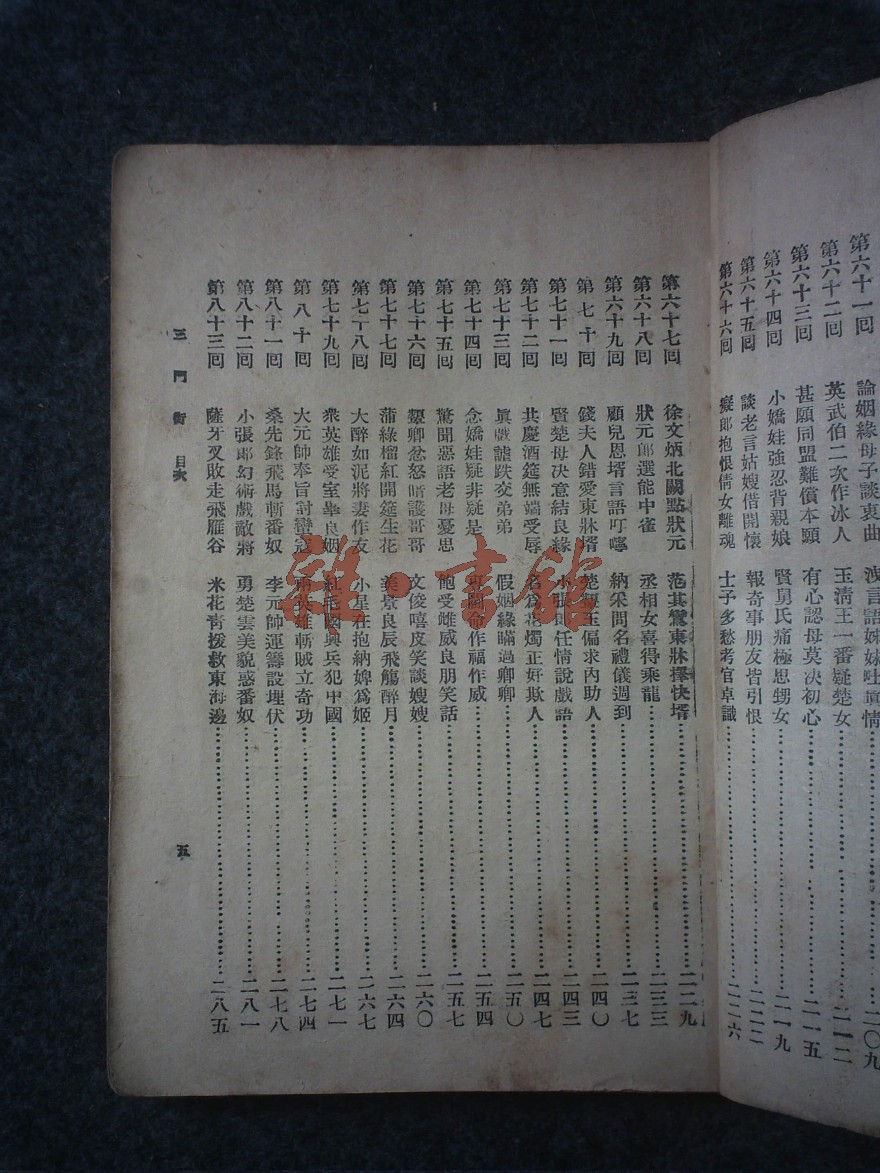 第六十一回 論姻緣母子談衷曲 洩言語姊妹吐真情 二〇九
第六十二回 英武伯二次作冰人 玉清王一番疑楚女 二一二
第六十三回 甚願同盟難償本願 有心認母莫決初心 二一五
第六十四回 小嬌娃強忍背親娘 賢舅氏痛極思甥女 二一九
第六十五回 談老言姑嫂借開懷 報奇事朋友皆引恨 二二二
第六十六回 癡郎抱恨倩女離魂 士子多愁考官卓識 二二六
第六十七回 徐文炳北闕點狀元 范其鸞東牀擇快壻 二二九
第六十八回 狀元郎選能中雀 丞相女喜得乘龍 二三三
第六十九回 顧兒恩壻言語叮嚀 納采問名禮儀週到 二三七
第七十回 錢夫人錯愛東牀壻 楚雲玉偏求內助人 二四〇
第七十一回 賢楚母決意結良緣 小張郎任情說戲語 二四三
第七十二回 共慶酒筵無端受辱 名為花燭正好欺人 二四七
第七十三回 眞戲謔跌交弟弟 假姻緣瞞過卿卿 二五〇
第七十四回 念嬌娃疑非疑是 作福作威 二五四
第七十五回 驚聞惡語老母憂思 飽受雌威良朋笑話 二五七
第七十六回 顰卿忿怒暗護哥哥 文俊嘻皮笑談嫂嫂 二六〇
第七十七回 蒲綠榴紅開筵生花 美景良辰飛觴醉月 二六四
第七十八回 大醉如泥將妻作友 小星在抱納婢爲姬 二六七
第七十九回 衆英雄受室畢良姻 紅毛國興兵犯中國 二七一
第八十回 大元帥奉旨討蠻寇 兩英雄斬賊立奇功 二七四
第八十一回 桑先鋒飛馬斬番奴 李元帥運籌設埋伏 二七八
第八十二回 小張郎幻術戲敵將 勇楚雲美貌惑番奴 二八一
第八十三回 薩牙叉敗走飛雁谷 米花青援救東海邊 二八五
三門街 目次 五
雜·書館